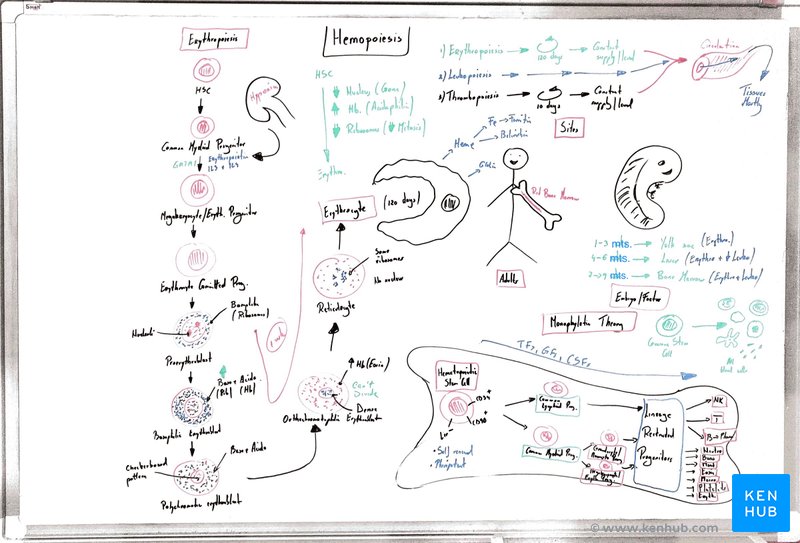 Erythropoiesis
HSC
Hypoxia
Common Myeloid Progenitor
GATA1
Erythropoietin
IL3 + IL4
Megakaryocyte/Eryth. Progenitor
Erythrocyte Committed Prog.
Basophilic
(Ribosomes)
Nucleoli
Proerythroblast
1 week
Base > Acido
(Rib) (Hb)
Basophilic erythroblast
Checkerboard
pattern
Base = Acido
Polychromatic erythroblast
Hemopoiesis
HSC
Nucleus (Gone)
Hb. (Acidophilic)
Ribosomes (Mitosis)
Erythro.
Erythrocyte
(120 days)
Some
ribosomes
No nucleus
Reticulocyte
Hb (Eosin)
Can't
Divide
Dense
Nucleus
Orthochromatophilic Erythroblast
1) Erythropoiesis
120 days
Constant
supply/level
2) Leukopoiesis
3) Thrombopoiesis
10 days
Constant
supply/level
Circulation
Tissues
Mostly
Heme
Fe
Ferritin
Bilirubin
Globin
Sites
Red Bone Marrow
Adults
1-3 mts. Yolk sac (Erythro.)
4-6 mts. Liver (Erythro + Leuko)
7-9 mts. Bone Marrow (Erythro + Leuko)
Embryo/Foetus
Monophyletic Theory
Common Stem
Cell
All
blood cells
TFs, GFs, CSFs
Hematopoietic
Stem Cell
CD34+
CD90+
Lin-
• Self renewal
• Pluripotent
Common
Lymphoid Prog.
Common Myeloid Prog.
Granulocyte/
Monocyte Prog.
Megakaryocyte/
Eryth Prog.
Lineage
Restricted
Progenitors
NK
T
B Plasma
Neutro
Baso
Mast
Eosin
Macro
Platelets
Eryth
KEN
HUB
© www.kenhub.com